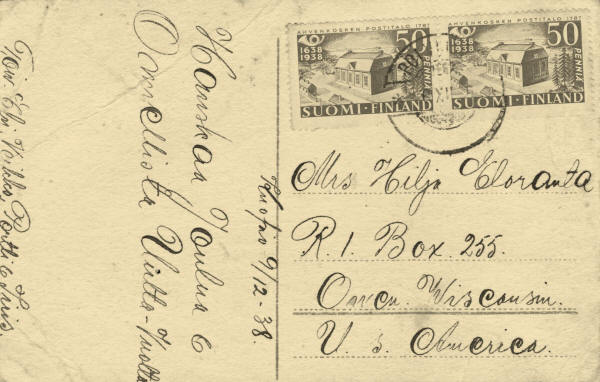 AHVENKOSKEN POSTITALO 1787
1638
1938
50
PENNIÄ
SUOMI-FINLAND
AHVENKOSKEN POSTITALO 1787
1638
1938
50
PENNIÄ
SUOMI-FINLAND
Hauskaa Joulua &
Onnellista Uutta-Vuotta
Kuopio 9/12-38
Mrs Hilja Eloranta
R. 1. Box 255.
Owen. Wisconsin.
U. S. America.